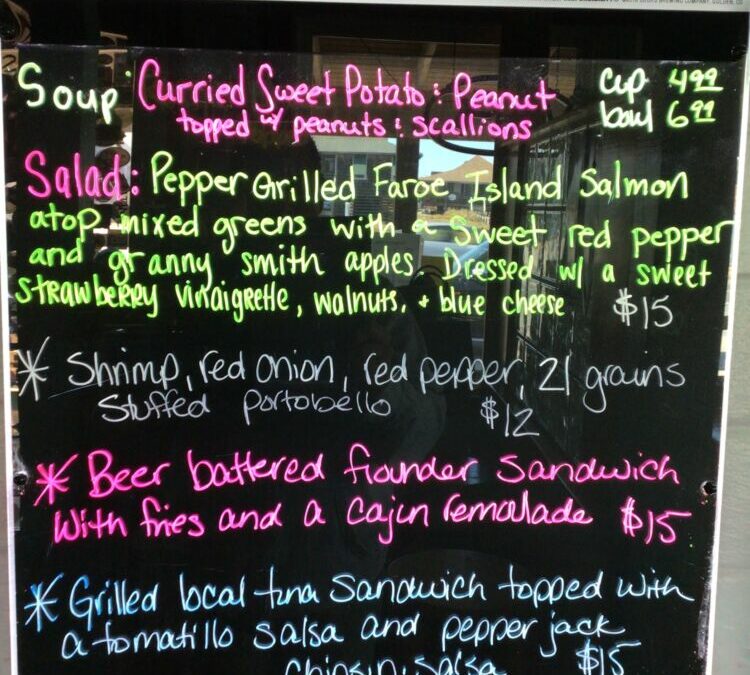 Soup: Curried Sweet Potato : Peanut cup 4.99
topped w/ peanuts : scallions bowl 6.99
Salad: Pepper Grilled Faroe Island Salmon
atop mixed greens with a sweet red pepper
and granny smith apples. Dressed w/ a sweet
strawberry vinaigrette, walnuts, + blue cheese $15
* Shrimp, red onion, red pepper, 21 grains
Stuffed portobello $12
* Beer battered flounder sandwich
with fries and a cajun remoulade $15
* Grilled local tuna sandwich topped with
a tomatillo salsa and pepper jack
salsa $15